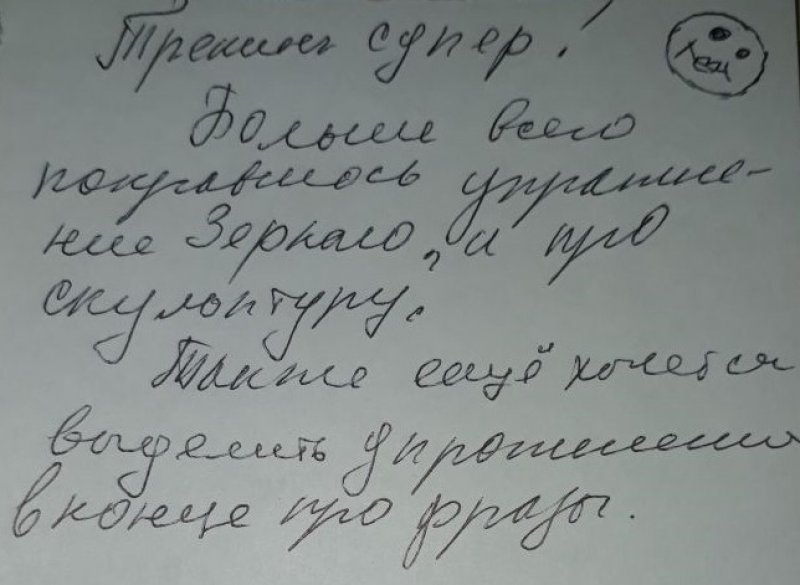 Тренинг супер!
Больше всего
понравилось упражне-
ние Зеркало, и про
скульптуру.
Также ещё хочется
выделить упражнени
в конце про фразы.